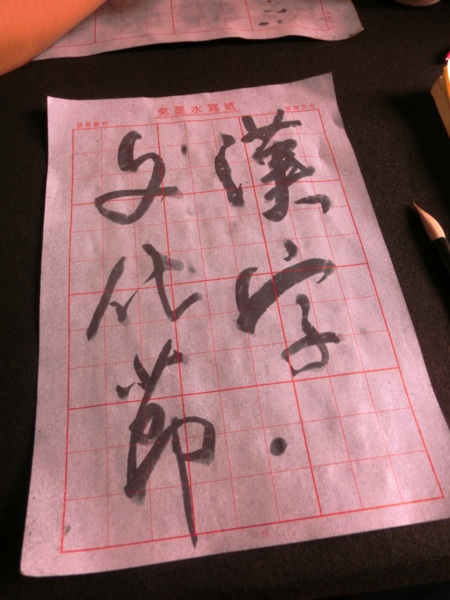 免墨水寫紙
漢字
文化節